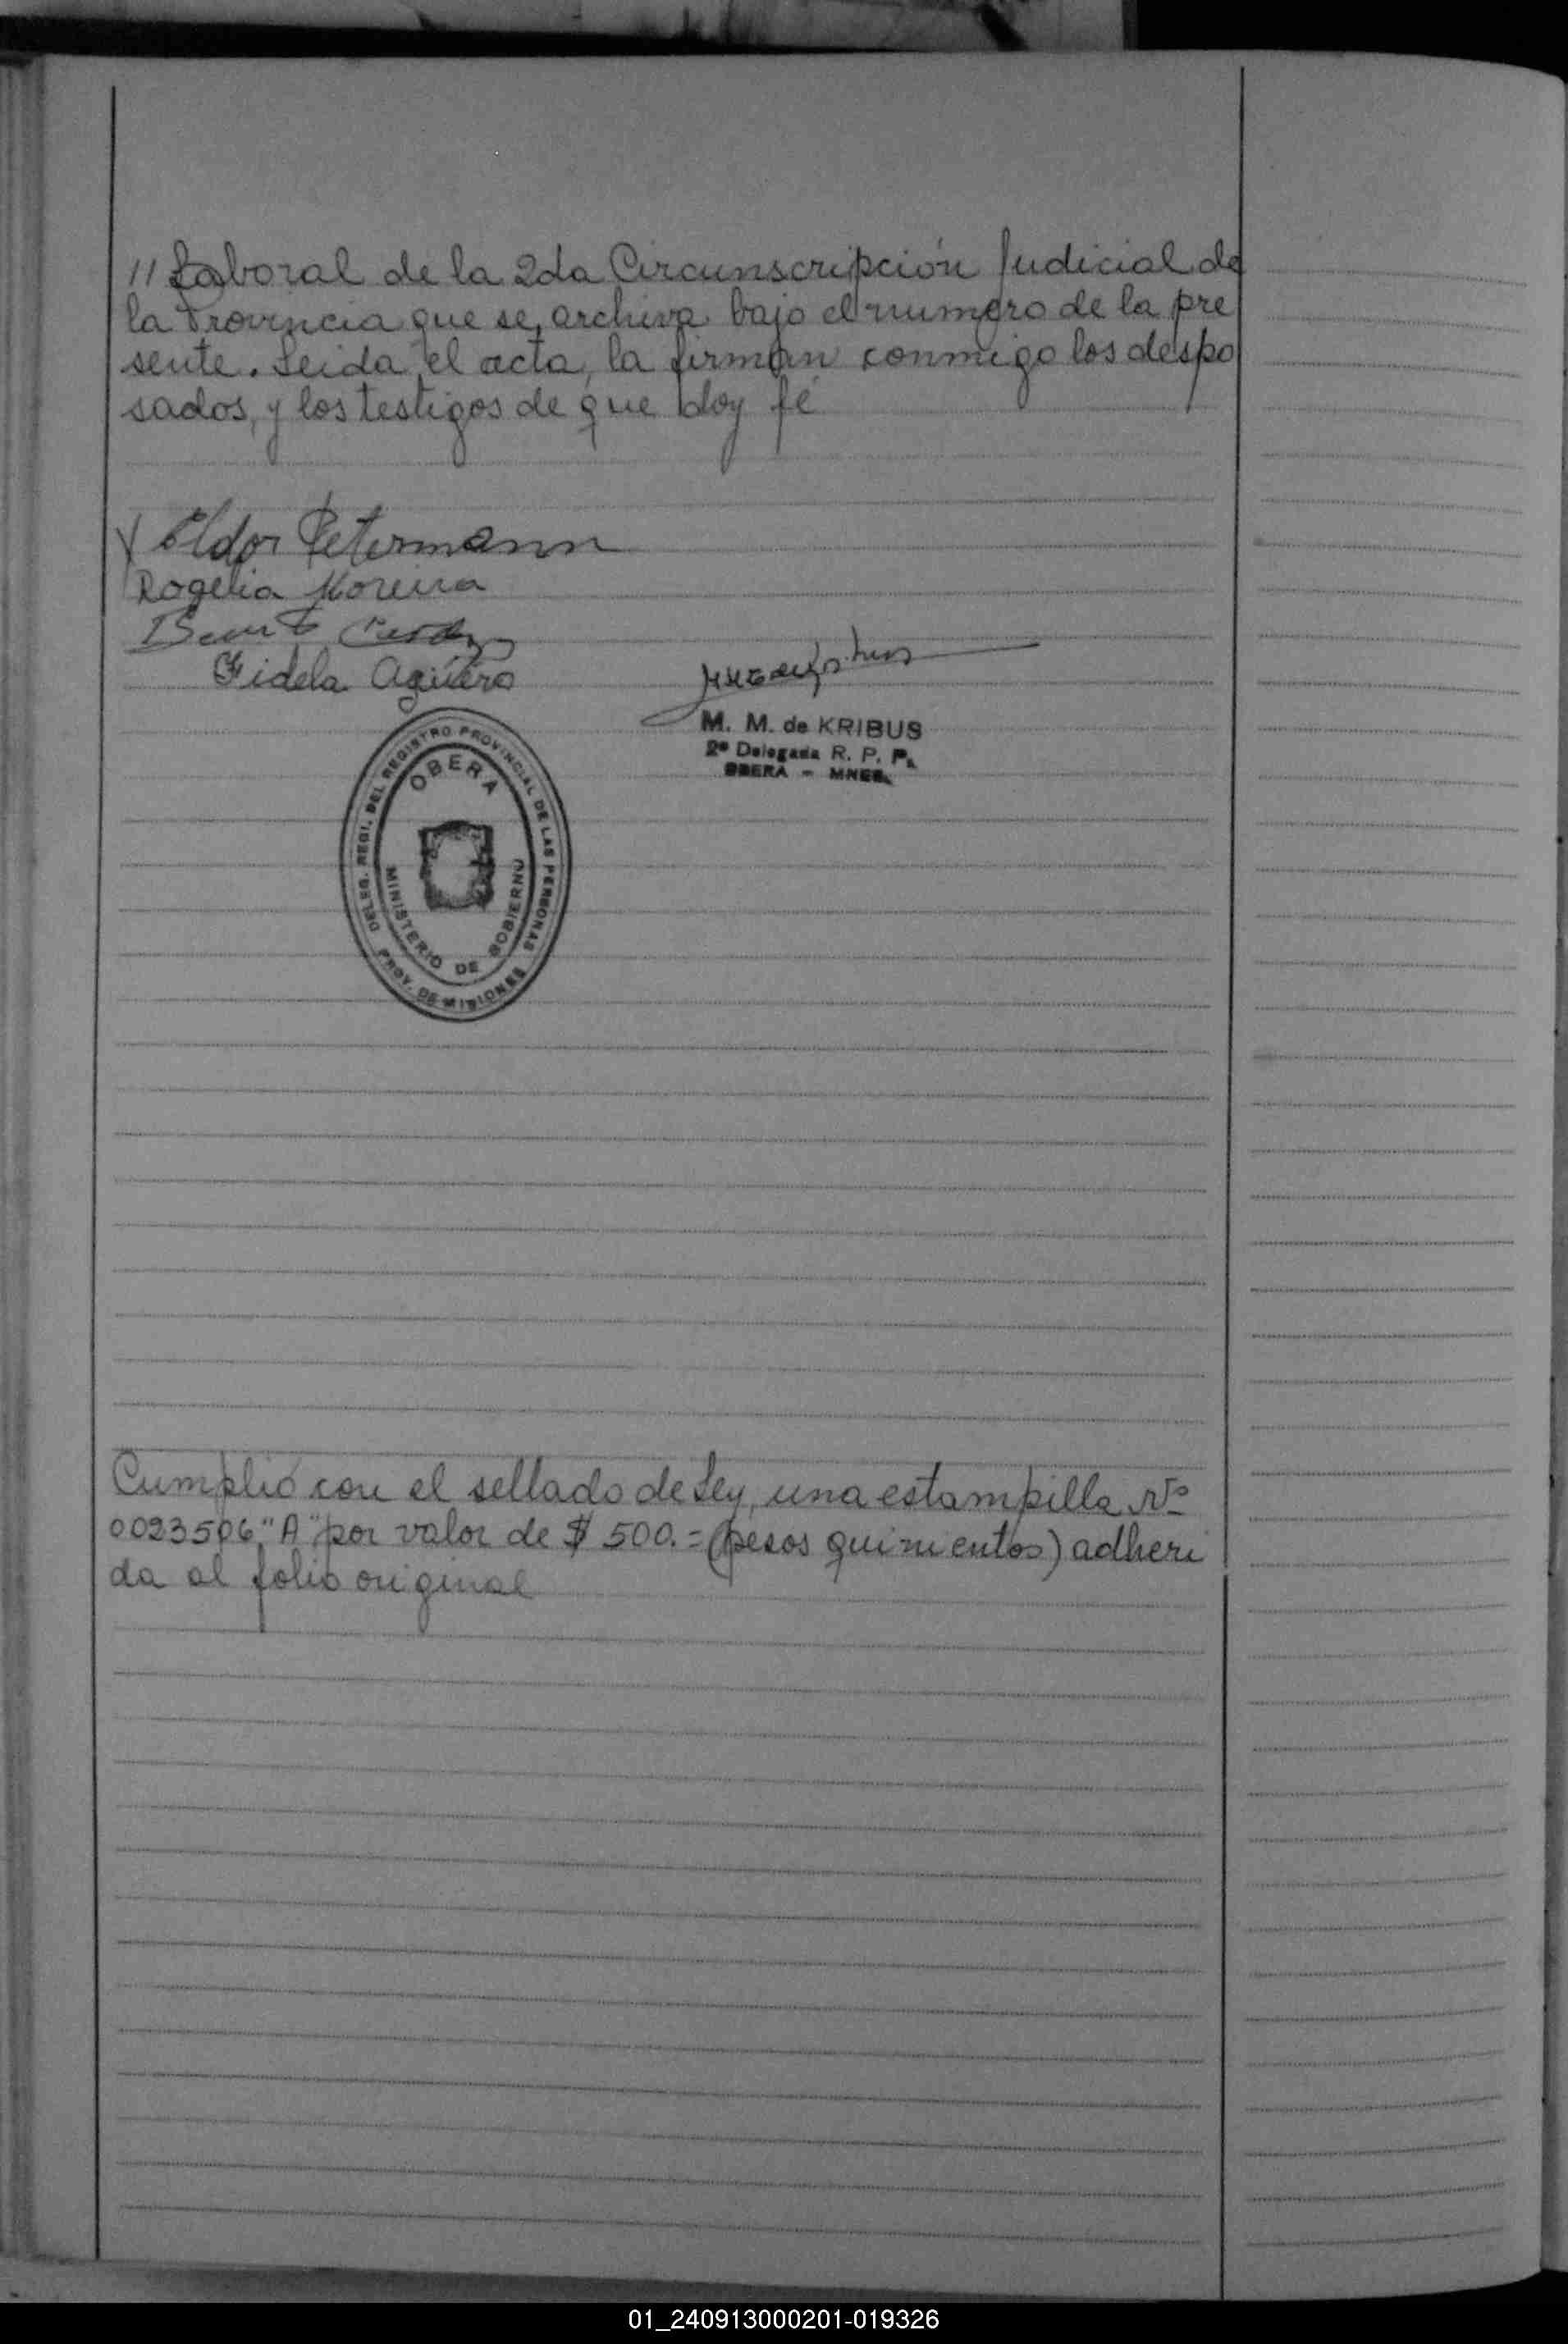 // Laboral de la 2da Circunscripción Judicial de
la Provincia que se archiva bajo el numero de la pre
sente. Leida el acta, la firman conmigo los despo
sados, y los testigos de que doy fé
Eldor Petermann
Rogelia Moreira
Fidela Agüero
M. M. de KRIBUS
2ª Delegada R. P. P.
OBERA - MNES.
DELEG. REGI. DEL REGISTRO PROVINCIAL DE LAS PERSONAS
OBERA
MINISTERIO DE GOBIERNO
PROV. DE MISIONES
Cumplió con el sellado de Ley, una estampilla Nº
0023506 "A" por valor de $ 500.= (pesos quinientos) adheri
da al folio original
01_240913000201-019326